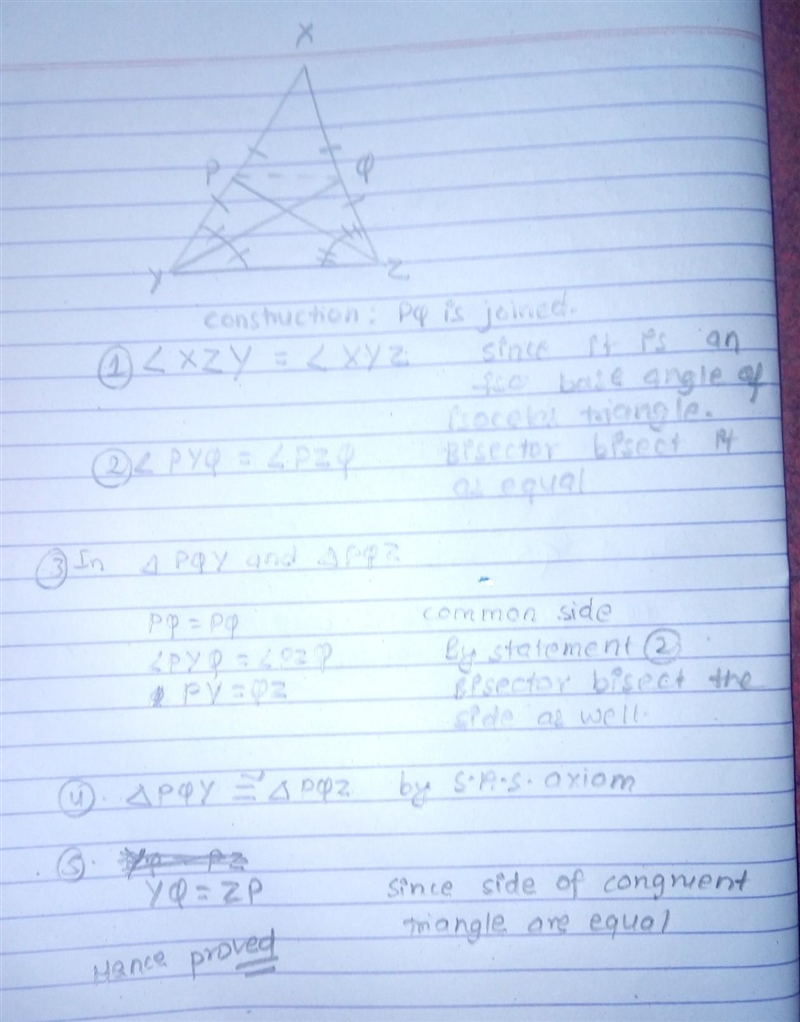 X
P Q
Y Z
construction: PQ is joined.
① ∠XZY = ∠XYZ since it is an
iso base angle of
isoceles triangle.
② ∠PYQ = ∠PZQ Bisector bisect it
as equal
③ In Δ PQY and Δ PQZ
PQ = PQ common side
∠PYQ = ∠PZQ By statement ②
PY = QZ Bisector bisect the
side as well.
④. ΔPQY ≅ ΔPQZ by S.A.S. axiom
⑤.
YQ = ZP since side of congruent
triangle are equal
Hance proved